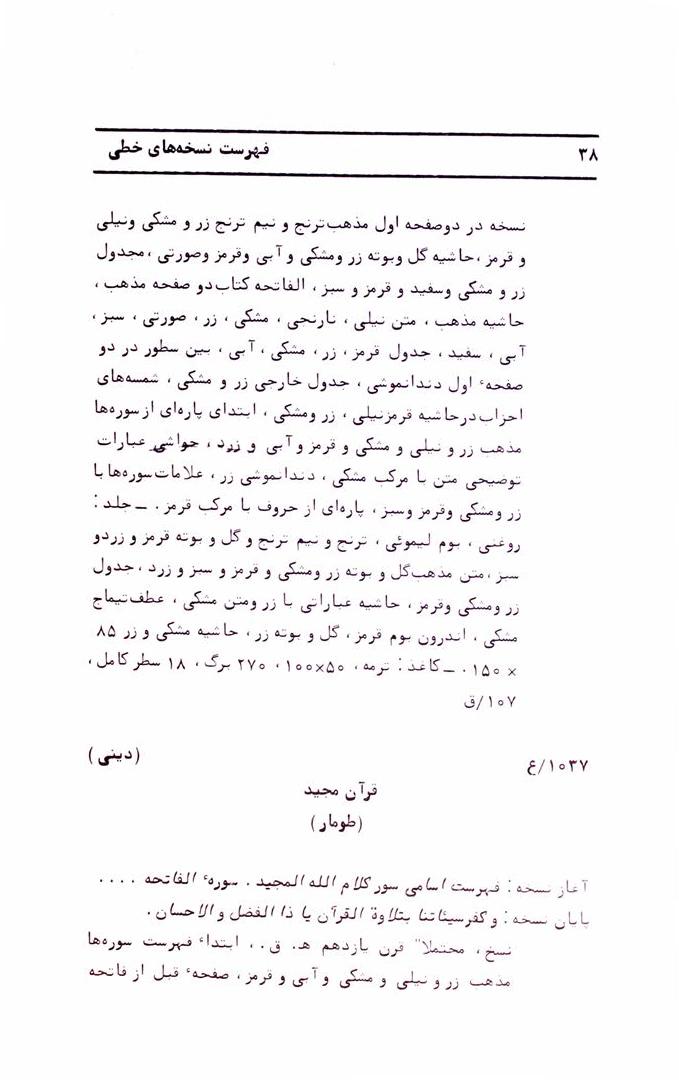 ۳۸ فهرست نسخه‌های خطی
نسخه در دوصفحه اول مذهب‌ترنج و نیم ترنج زر و مشکی ونیلی
و قرمز ،حاشیه گل وبوته زر ومشکی و آبی وقرمز وصورتی ،مجدول
زر و مشکی وسفید و قرمز و سبز ، الفاتحه کتاب دو صفحه مذهب ،
حاشیه مذهب ، متن نیلی ، نارنجی ، مشکی ، زر ، صورتی ، سبز ،
آبی ، سفید ، جدول قرمز ، زر ، مشکی ، آبی ، بین سطور در دو
صفحهٔ اول دندانموشی ، جدول خارجی زر و مشکی ، شمسه‌های
احزاب درحاشیه قرمزنیلی ، زر ومشکی ، ابتدای پاره‌ای از سوره‌ها
مذهب زر و نیلی و مشکی و قرمز و آبی و زرد ، حواشی عبارات
توضیحی متن با مرکب مشکی ، دندانموشی زر ، علامات سوره‌ها با
زر ومشکی وقرمز وسبز ، پاره‌ای از حروف با مرکب قرمز . ــ جلد :
روغنی ، بوم لیموئی ، ترنج و نیم ترنج و گل و بوته قرمز و زردو
سبز ،متن مذهب‌گل و بوته زر ومشکی و قرمز و سبز و زرد ، جدول
زر ومشکی وقرمز ، حاشیه عباراتی با زر ومتن مشکی ، عطف تیماج
مشکی ، اندرون بوم قرمز ، گل و بوته زر ، حاشیه مشکی و زر ۸۵
× ۱۵۰ . ــ کاغذ : ترمه ، ۵۰×۱۰۰ ، ۲۷۰ برگ ، ۱۸ سطر کامل ،
۱۰۷/ق
۱۰۳۷/ع (دینی)
قرآن مجید
(طومار)
آغاز نسخه : فهرست اسامی سور کلام الله المجید . سورهٔ الفاتحه ....
پایان نسخه : و کفرسیئاتنا بتلاوة القرآن یا ذا الفضل و الاحسان .
نسخ ، محتملا" قرن یازدهم هـ. ق .، ابتداء فهرست سوره‌ها
مذهب زر و نیلی و مشکی و آبی و قرمز ، صفحهٔ قبل از فاتحه